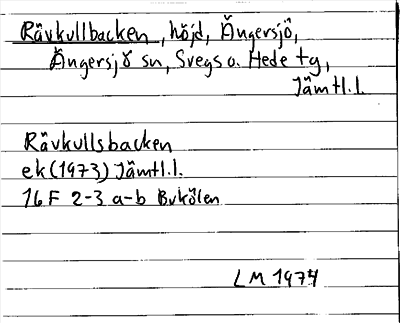 Rävkullbacken, höjd, Ängersjö,
Ängersjö sn, Svegs o. Hede tg,
Jämtl.l.
Rävkullsbacken
ek (1973) Jämtl.l.
16F 2-3 a-b Bukölen
LM 1974